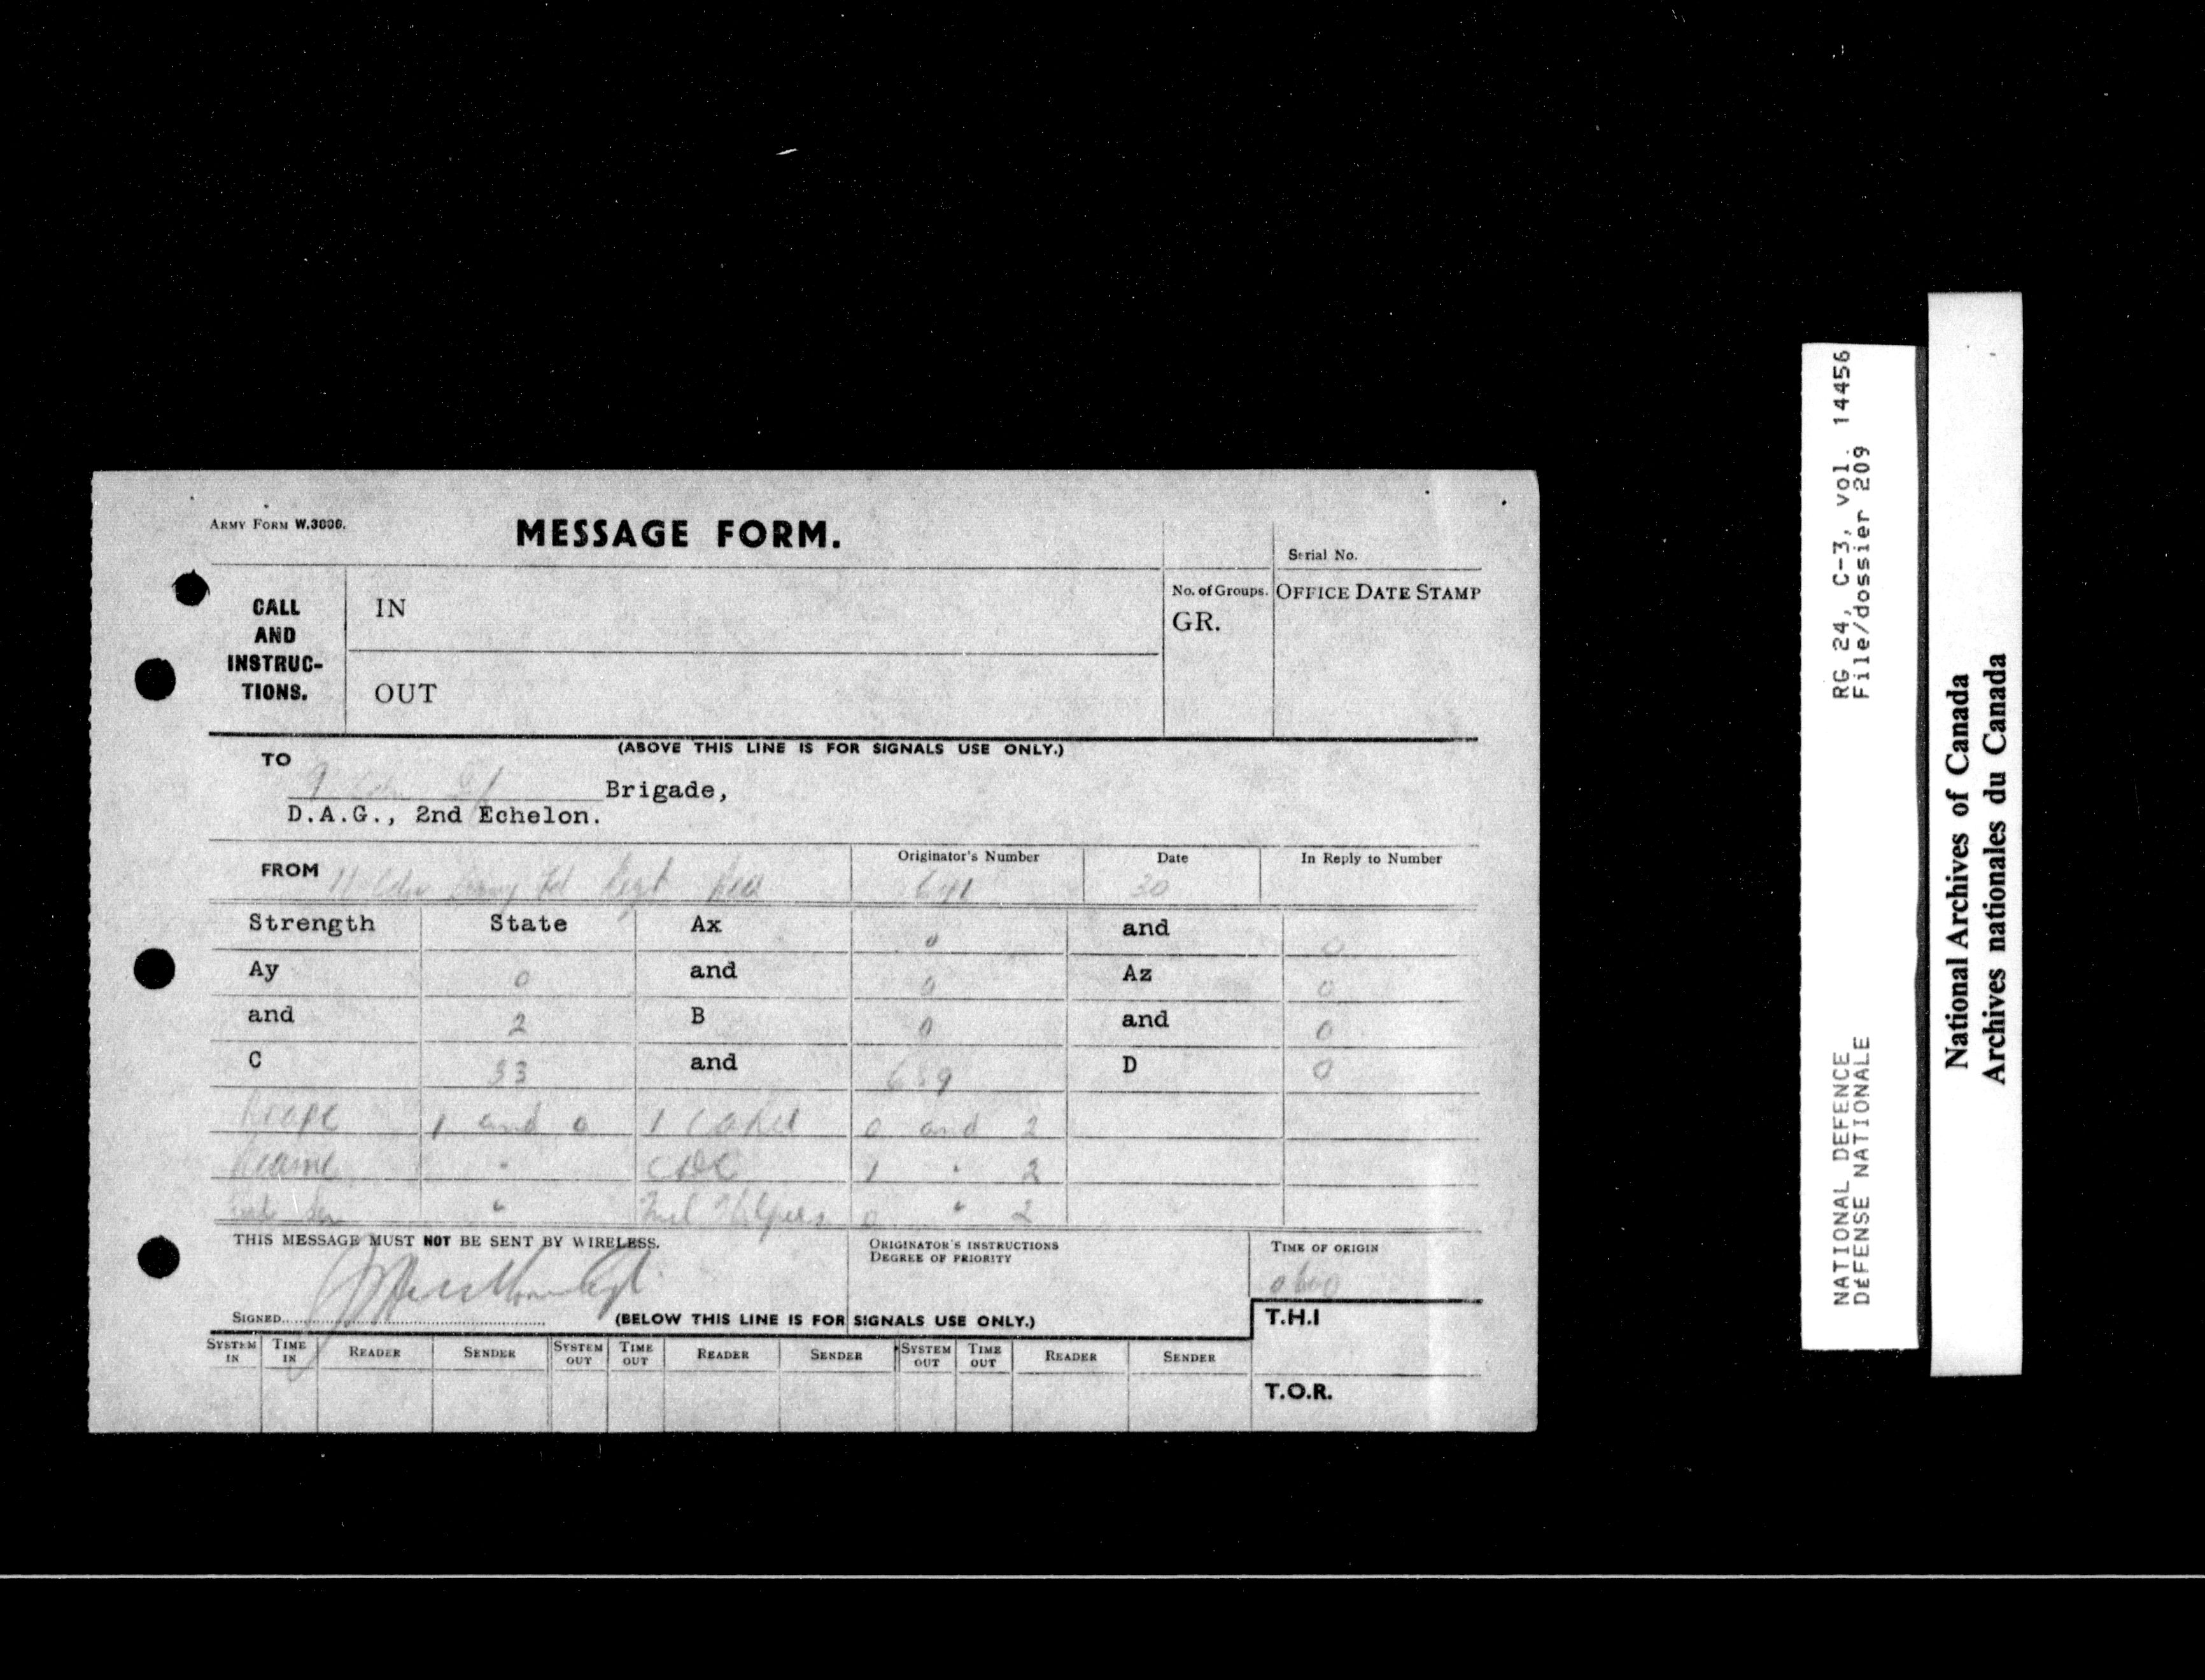 ARMY FORM W.3000.
MESSAGE FORM.
Serial No.
CALL AND INSTRUC- TIONS.
IN
No. of Groups.
GR.
OFFICE DATE STAMP
OUT
(ABOVE THIS LINE IS FOR SIGNALS USE ONLY.)
TO
9 Brigade,
D.A.G., 2nd Echelon.
FROM 11 Cdn Army Fd Regt RCA
Originator's Number
Date 30
In Reply to Number
Strength State Ax 0 and 0
Ay 0 and 0 Az 0
and 2 B 0 and 0
C 33 and D 0
1 and 0 0 and 2
" CDC 1 " 2
" 0 " 2
THIS MESSAGE MUST NOT BE SENT BY WIRELESS.
ORIGINATOR'S INSTRUCTIONS
DEGREE OF PRIORITY
TIME OF ORIGIN
0600
SIGNED
(BELOW THIS LINE IS FOR SIGNALS USE ONLY.)
T.H.I
SYSTEM IN TIME IN READER SENDER SYSTEM OUT TIME OUT READER SENDER SYSTEM OUT TIME OUT READER SENDER
T.O.R.
RG 24, C-3, vol. 14456
File/dossier 209
NATIONAL DEFENCE
DEFENSE NATIONALE
National Archives of Canada
Archives nationales du Canada